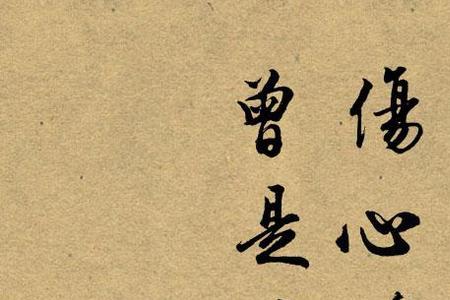 傷心
曾是